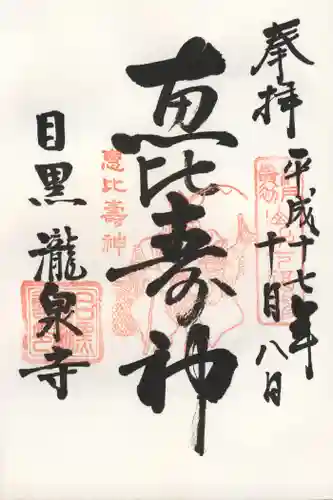 奉拝
平成十七年
十月八日
恵比寿神
恵比壽神
目黒
瀧泉寺